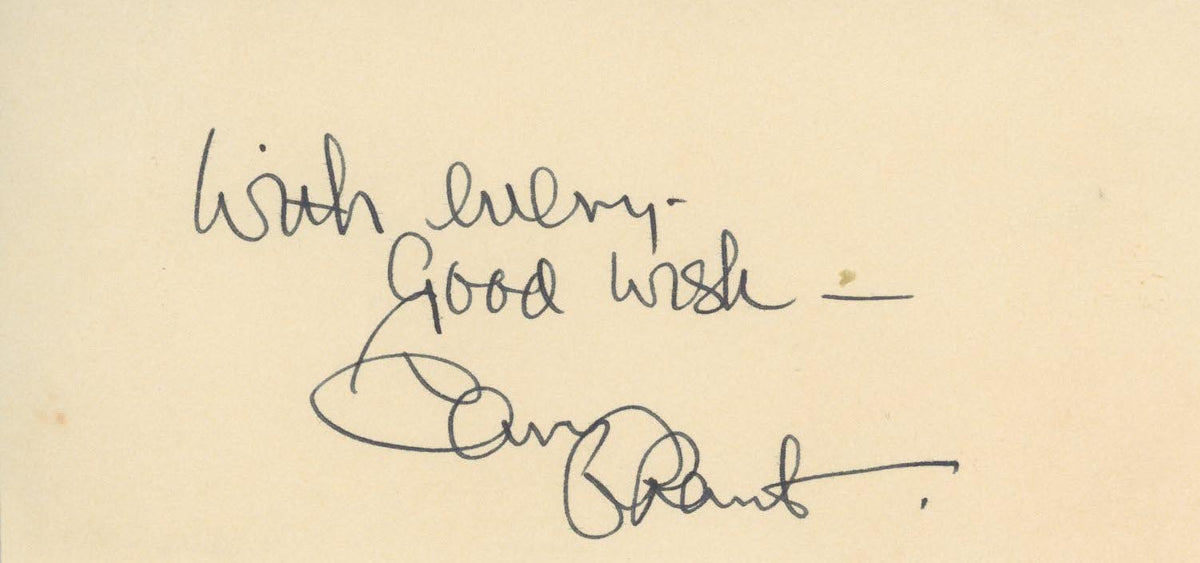 With every
Good Wish —
Cary Grant.